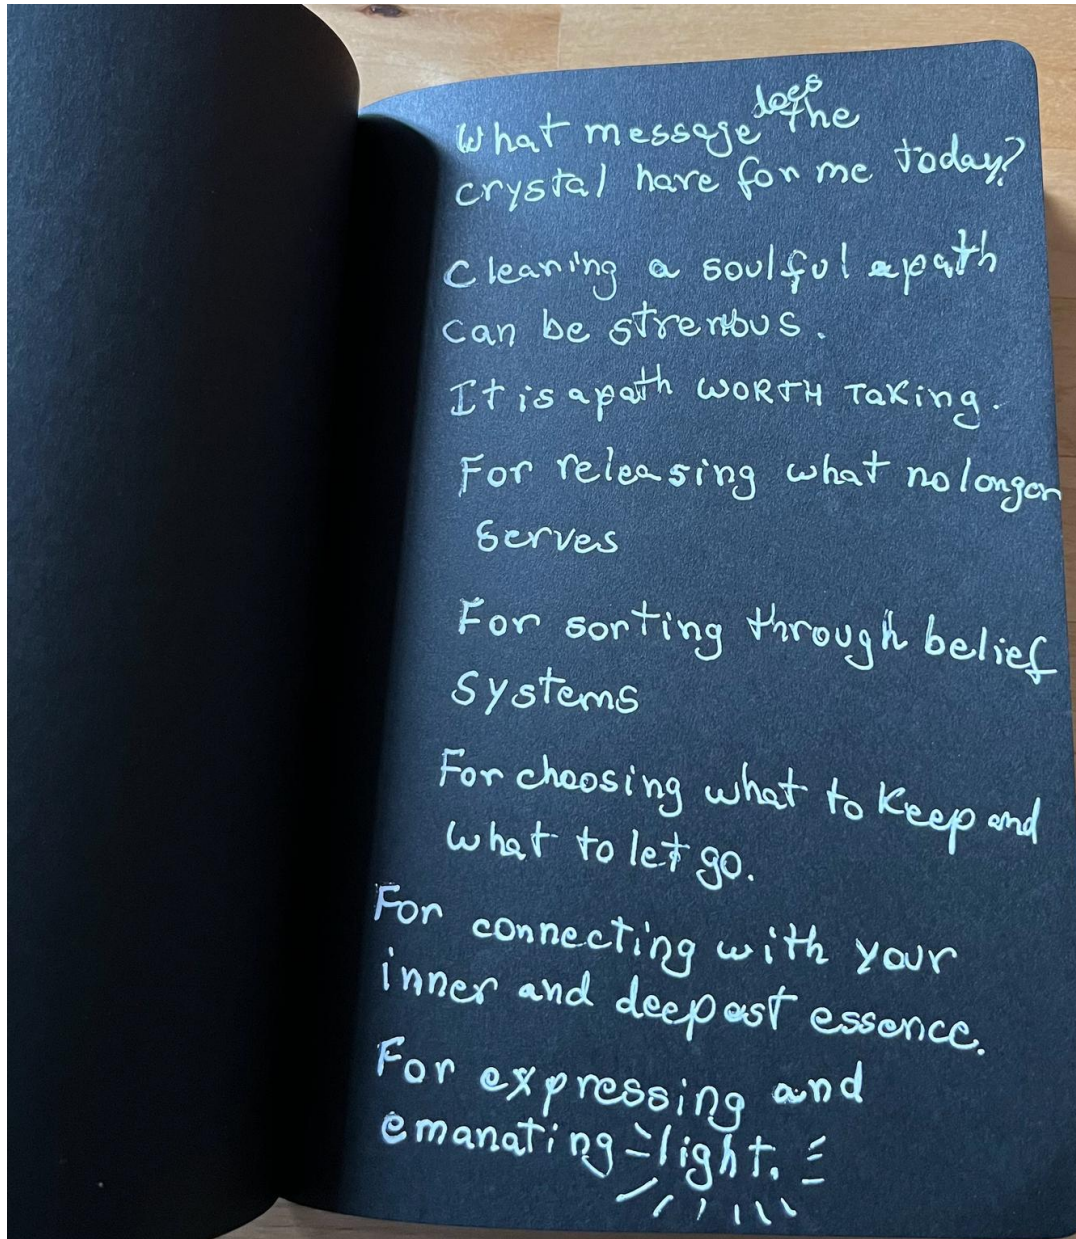 What message does the
crystal have for me today?
Cleaning a soulful path
can be strenous.
It is a path WORTH TaKing.
For releasing what no longer
serves
For sorting through belief
systems
For choosing what to Keep and
what to let go.
For connecting with your
inner and deepest essence.
For expressing and
emanating light.